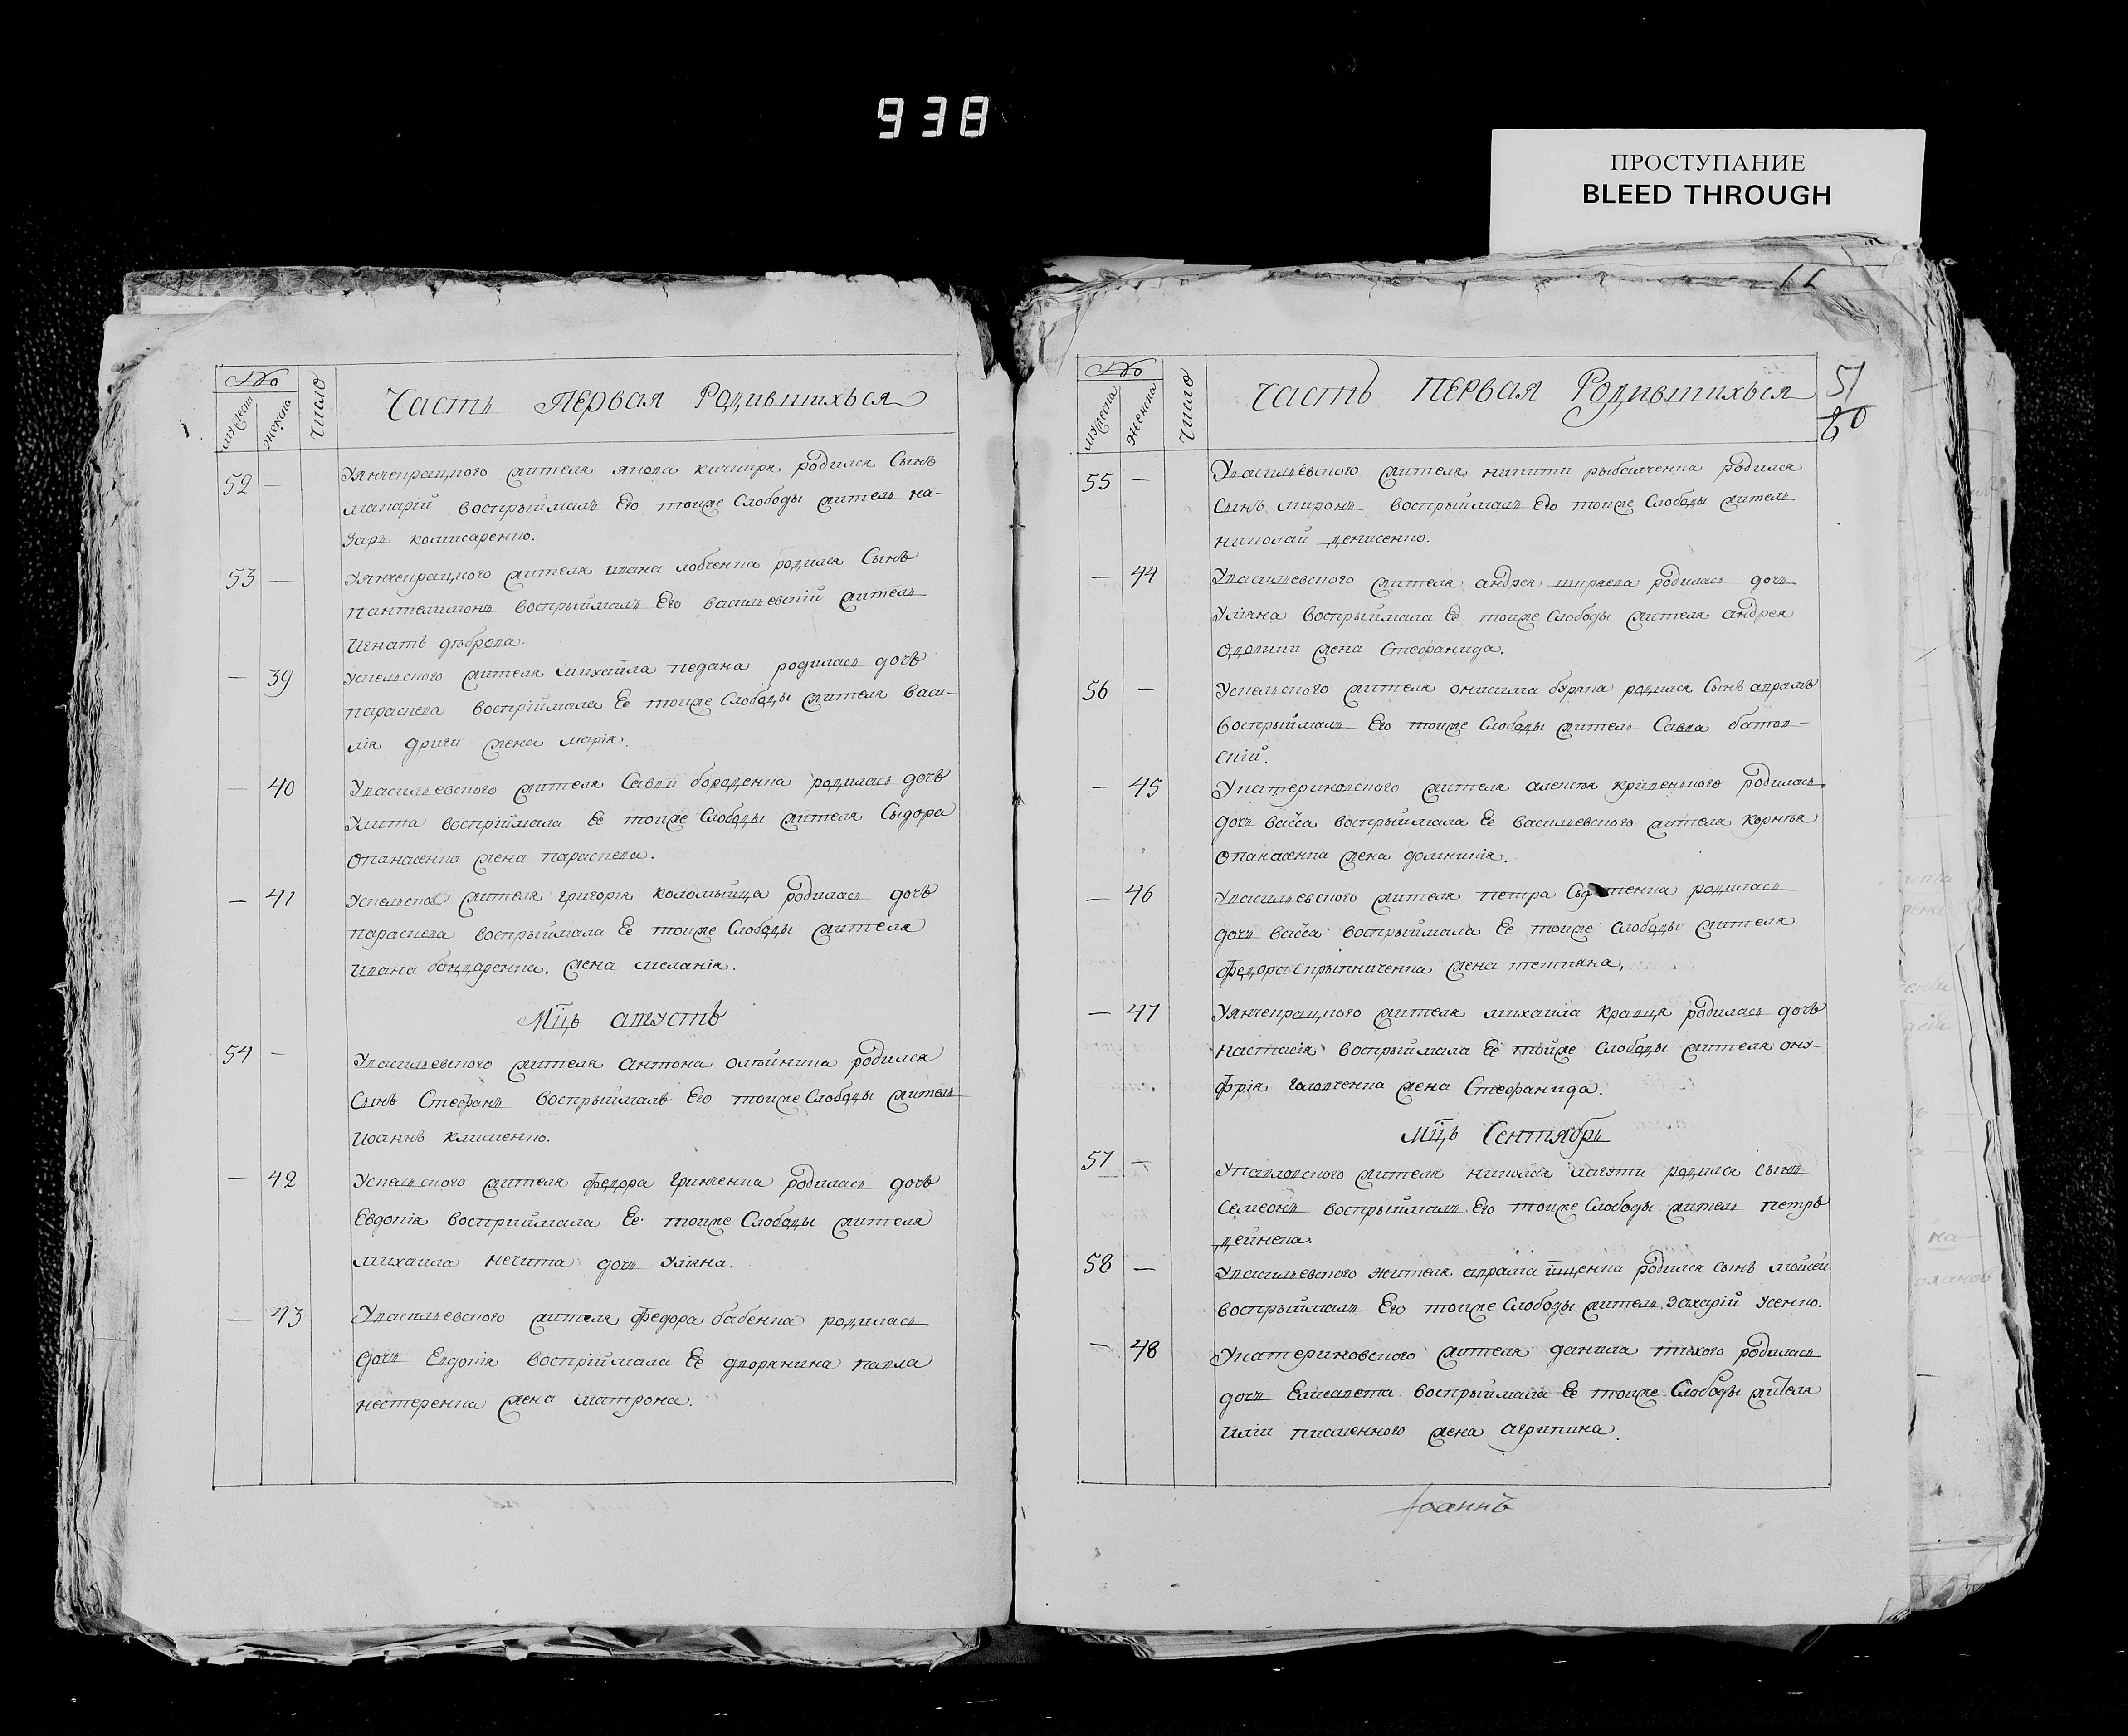 938
ПРОСТУПАНИЕ
BLEED THROUGH
№
мужеска
женска
число
Часть первая Родившихъся
52 — Уянчепрацкого жителя якова кичмира родился Сынъ
макарій воспрыймалъ Его тоиже Слободы житель на-
заръ комисаренко.
53 — Уянчепрацкого жителя ивана лобченка родился Сынъ
пантелимонъ воспрыймалъ Его васильевскій житель
Игнатъ дъброва.
— 39 Успельского жителя михайла педана родилась дочъ
параскева воспріймала Ее тоиже Слободы жителя васи-
лія дриги жена марія.
— 40 Увасильевского жителя Савви бороденка родилась дочъ
Улита воспріймала Ее тоиже Слободы жителя Сыдора
Опанасенка жена параскева.
— 41 жителя григорія коломыйца родилась дочъ
параскева воспрыймала Ее тоиже Слободы жителя
ивана бондаренка. жена меланія.
Мцъ августъ
54 — Увасильевского жителя антона олѣйника родился
Сынъ Стефанъ воспрыймалъ Его тоиже Слободы житель
Иоаннъ клименко.
— 42 Успельского жителя федора гринченка родилась дочъ
Евдокія восприймала Ее тоиже Слободы жителя
михаила нечита дочъ Уліяна.
— 43 Увасильевского жителя федора бабенка родилась
дочъ Евдокія воспріймала Ее дворянина павла
нестеренка жена матрона.
№
мужеска
женска
число
Часть первая Родившихъся
51
60
55 — Увасильевского жителя никити рыбалченка родился
Сынъ миронъ воспрыймалъ Его тоиже Слободы житель
николай денисенко.
— 44 Увасильевского жителя андрея ширяева родилась дочь
Уліяна воспрыймала Ее тоиже Слободы жителя андрея
жена Стефанида.
56 — Успельского жителя онисима буряка родился Сынъ аврамъ
воспрыймалъ Его тоиже Слободы житель Савва батов-
скій.
— 45 Укатериновского жителя алексѣя кривенького родилась
дочь васса воспрыймала Ее васильевского жителя корнѣя
Опанасенка жена домникія.
— 46 Увасильевского жителя петра родилась
дочь васса воспрыймала Ее тоиже Слободы жителя
федора скрыпниченка жена тетияна.
— 47 Уянчепрацкого жителя михаила кравця родилась дочъ
настасія воспрыймала Ее тоиже Слободы жителя ону-
фрія головченка жена Стефанида.
Мцъ Сентябрь
57 — Упавловского жителя николая магути родился Сынъ
Семеонъ воспрыймалъ Его тоиже Слободы житель петръ
дейнека.
58 — Увасильевского жителя аврама ищенка родился Сынъ мойсей
воспрыймалъ Его тоиже Слободы житель Захарій Усенко.
— 48 Укатериновского жителя данила тихого родилась
дочь Елисавета воспрыймала Ее тоиже Слободы жителя
иліи писменного жена агрипина.
Іоаннъ